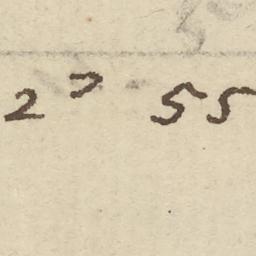 2⁷ 55